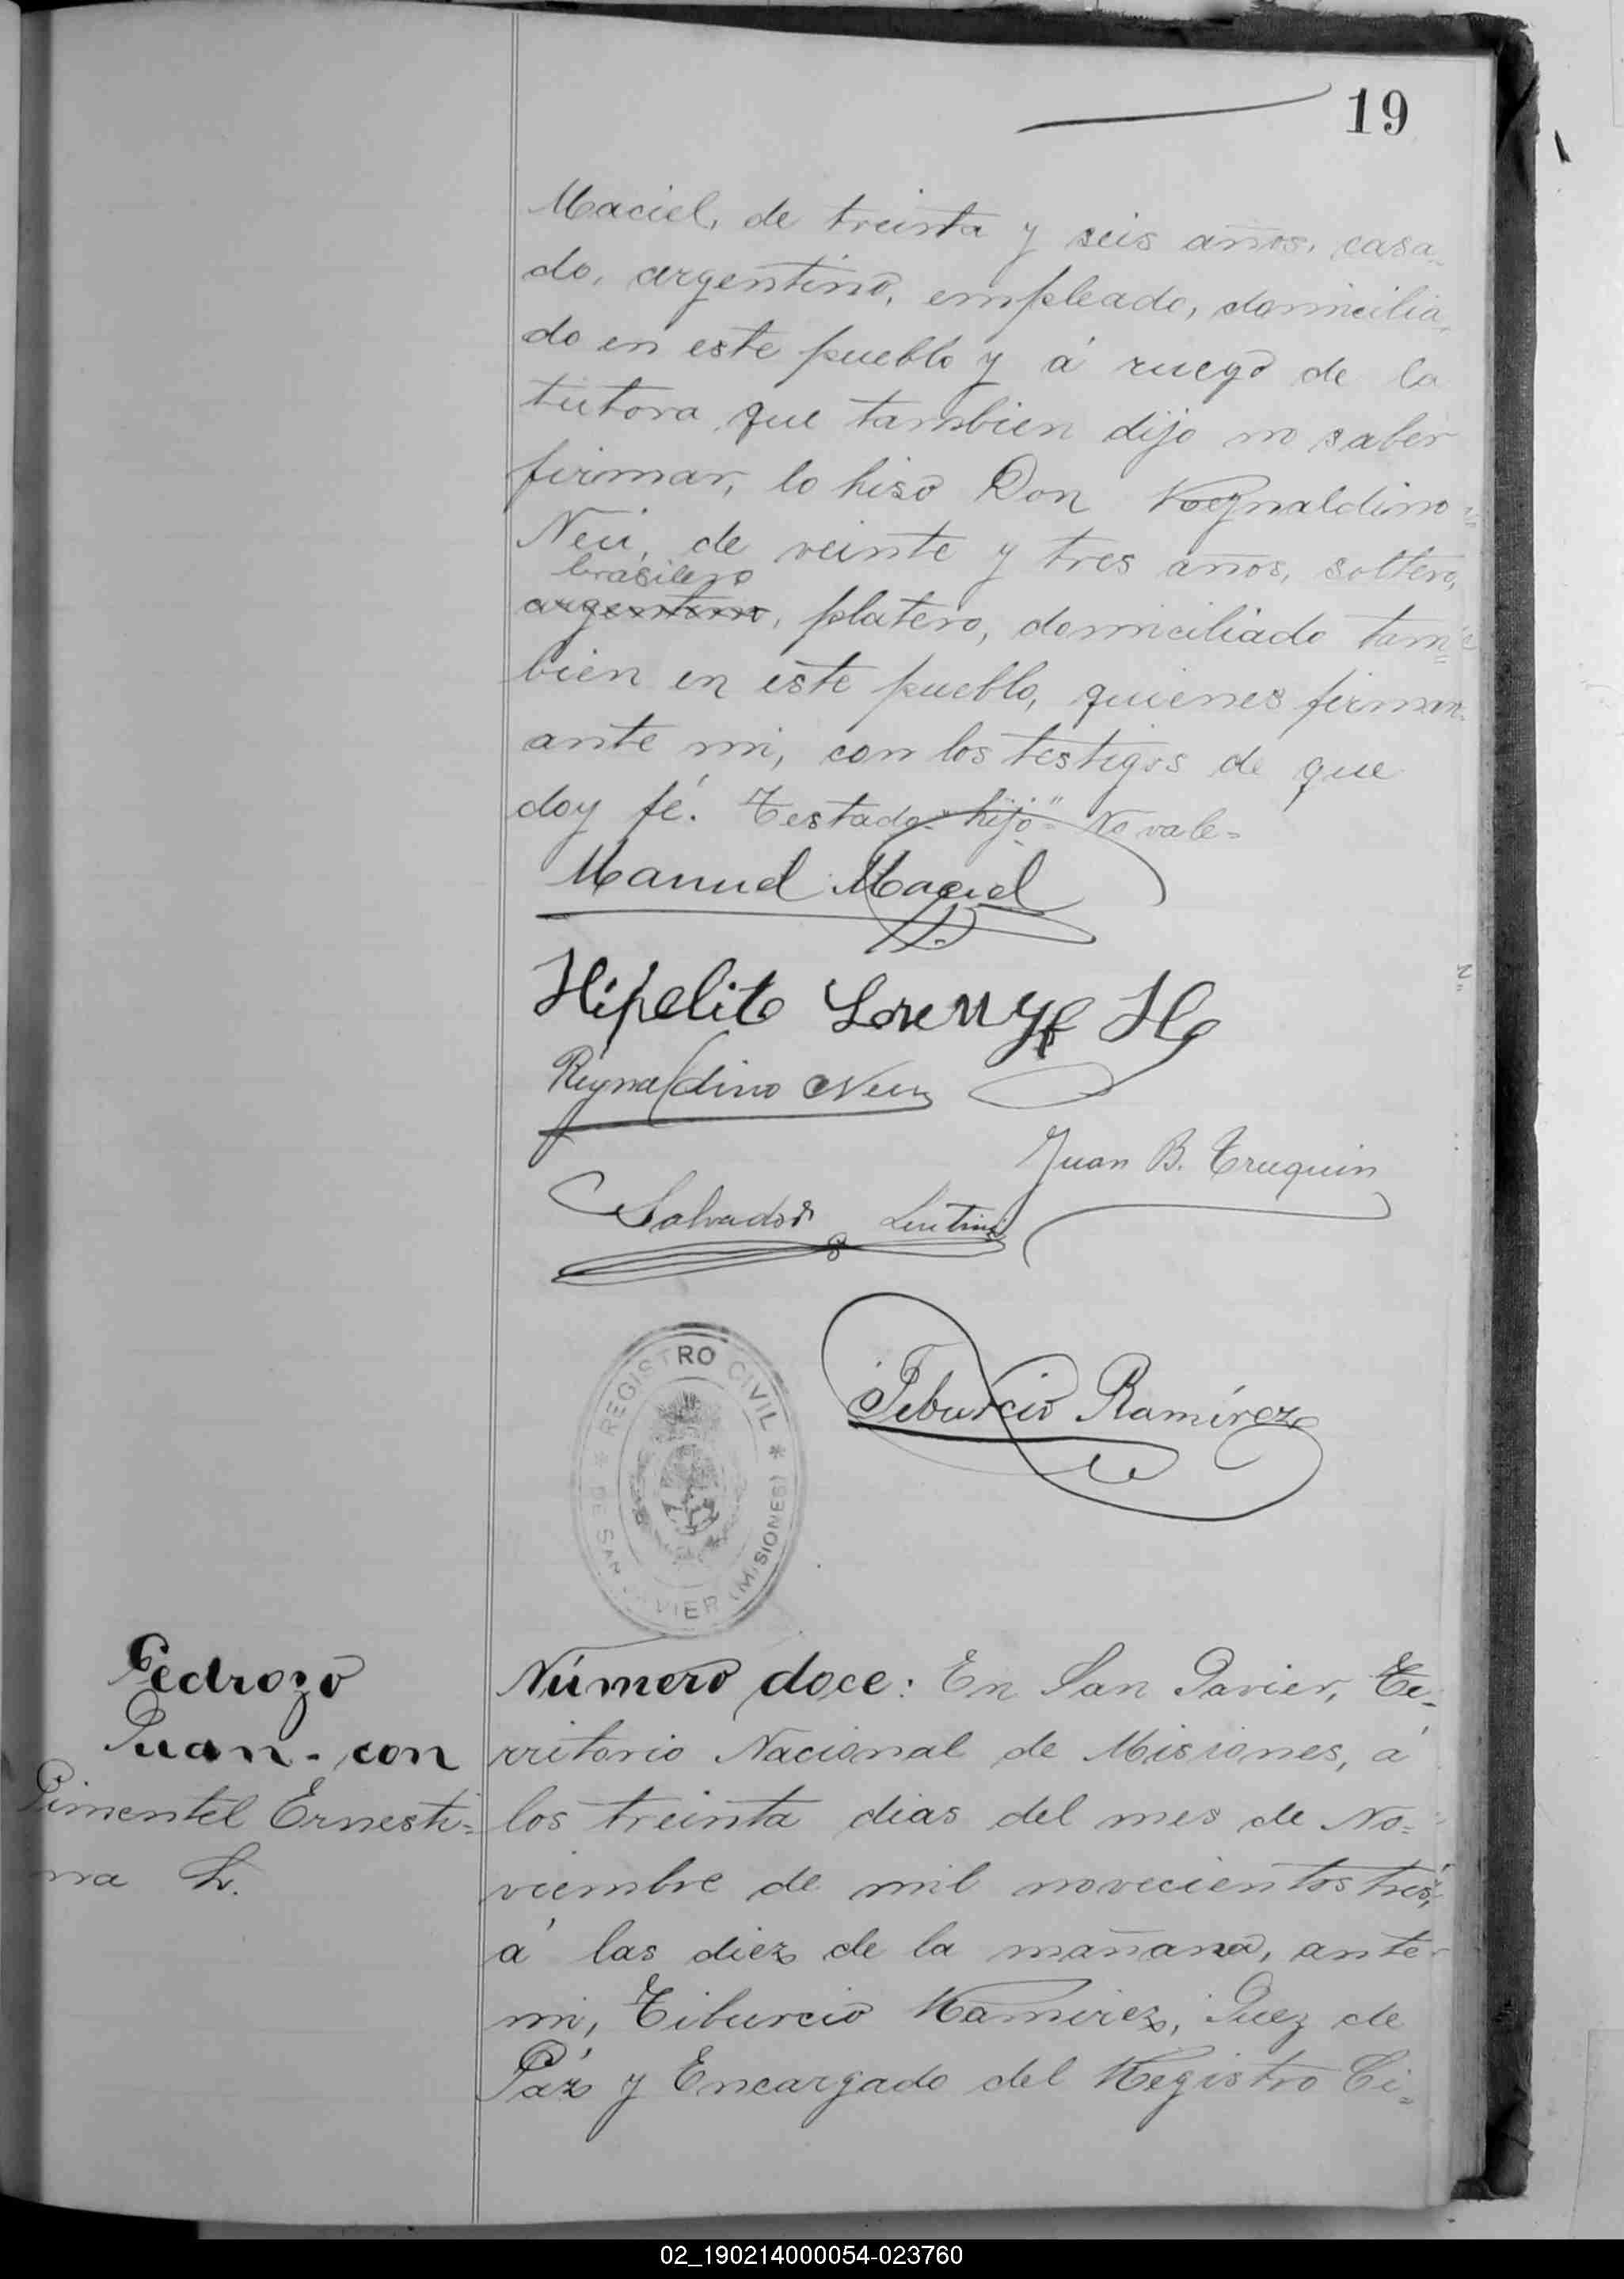 19
Maciel, de treinta y seis años, casa-
do, argentino, empleado, domicilia-
do en este pueblo y á ruego de la
tutora que tambien dijo no saber
firmar, lo hiso Don Reynaldino
Neu, de veinte y tres años, soltero,
brasilero
argentino, platero, domiciliado tam=
bien en este pueblo, quienes firman
ante mi, con los testigos de que
doy fé. Testado "hijo" No vale=
Manuel Maciel
Hipolito H
Reynaldino Neu
Juan B. Truquin
Salvador
Teburcio Ramírez
REGISTRO CIVIL
DE SAN JAVIER (MISIONES)
Pedrozo
Juan - con
Pimentel Ernesti=
na L.
Número doce: En San Javier, Te-
rritorio Nacional de Misiones, á
los treinta dias del mes de No=
viembre de mil novecientos tres,
á las diez de la mañana, ante
mi, Tiburcio Ramirez, Juez de
Páz y Encargado del Registro Ci=
02_190214000054-023760